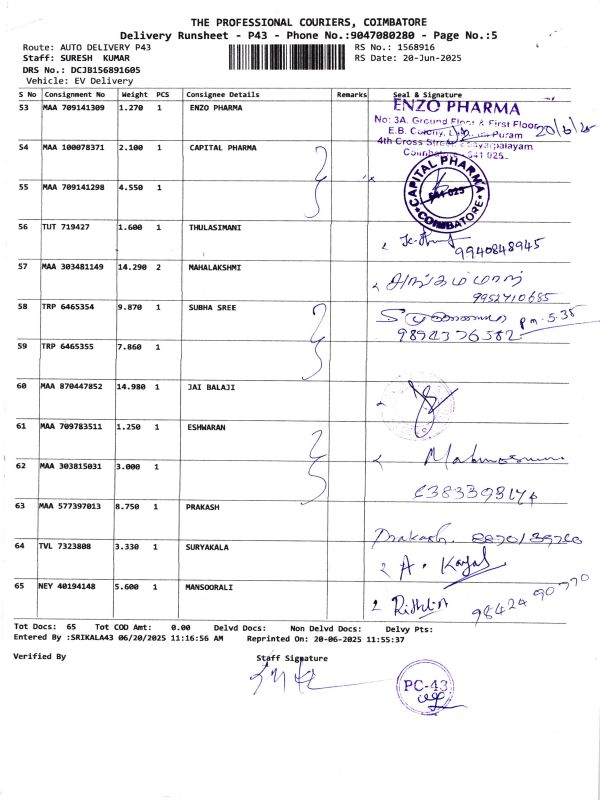 THE PROFESSIONAL COURIERS, COIMBATORE
Delivery Runsheet - P43 - Phone No.:9047080280 - Page No.:5
Route: AUTO DELIVERY P43
RS No.: 1568916
Staff: SURESH KUMAR
RS Date: 20-Jun-2025
DRS No.: DCJB156891605
Vehicle: EV Delivery
S No Consignment No Weight PCS Consignee Details Remarks Seal & Signature
53 MAA 709141309 1.270 1 ENZO PHARMA
ENZO PHARMA
No: 3A, Ground Floor & First Floor
E.B. Colony, Puram 20/6/25
4th Cross Street
Coimbatore 641 025
54 MAA 100078371 2.100 1 CAPITAL PHARMA
CAPITAL PHARMA
641 025
COIMBATORE
55 MAA 709141298 4.550 1
56 TUT 719427 1.600 1 THULASIMANI
9940848945
57 MAA 303481149 14.290 2 MAHALAKSHMI
9952710685
58 TRP 6465354 9.870 1 SUBHA SREE
pm. 5.35
9894376582
59 TRP 6465355 7.860 1
60 MAA 870447852 14.980 1 JAI BALAJI
61 MAA 709783511 1.250 1 ESHWARAN
62 MAA 303815031 3.000 1
63 MAA 577397013 8.750 1 PRAKASH
Prakash.
64 TVL 7323808 3.330 1 SURYAKALA
A.
65 NEY 40194148 5.600 1 MANSOORALI
98424 90770
Tot Docs: 65 Tot COD Amt: 0.00 Delvd Docs: Non Delvd Docs: Delvy Pts:
Entered By :SRIKALA43 06/20/2025 11:16:56 AM Reprinted On: 20-06-2025 11:55:37
Verified By
Staff Signature
PC-43